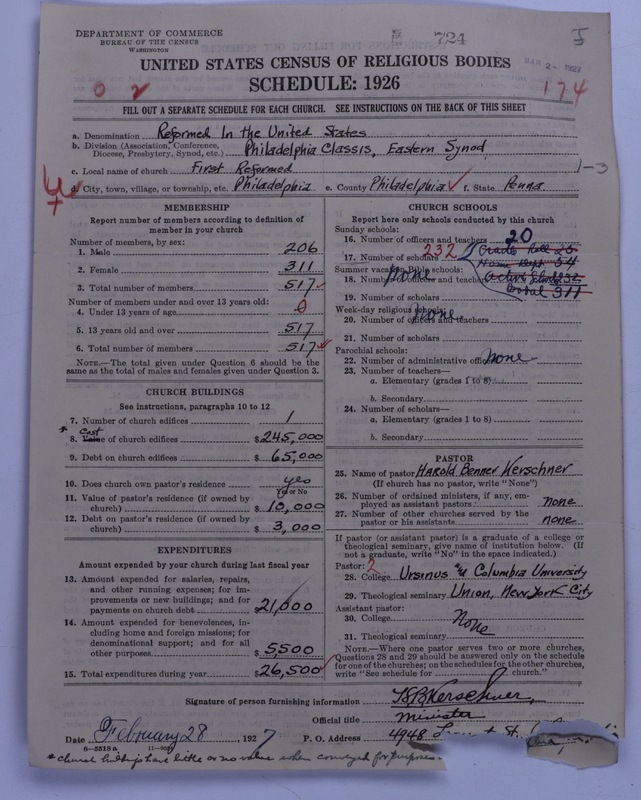 DEPARTMENT OF COMMERCE
BUREAU OF THE CENSUS
WASHINGTON
724
I
MAR 2 - 1927
UNITED STATES CENSUS OF RELIGIOUS BODIES
SCHEDULE: 1926
174
FILL OUT A SEPARATE SCHEDULE FOR EACH CHURCH. SEE INSTRUCTIONS ON THE BACK OF THIS SHEET
a. Denomination Reformed In the United States
b. Division (Association, Conference, Diocese, Presbytery, Synod, etc.) Philadelphia Classis, Eastern Synod
c. Local name of church First Reformed
1-3
d. City, town, village, or township, etc. Philadelphia e. County Philadelphia f. State Penna
MEMBERSHIP
Report number of members according to definition of member in your church
Number of members, by sex:
1. Male 206
2. Female 311
3. Total number of members 517
Number of members under and over 13 years old:
4. Under 13 years of age 0
5. 13 years old and over 517
6. Total number of members 517
NOTE.—The total given under Question 6 should be the same as the total of males and females given under Question 3.
CHURCH BUILDINGS
See instructions, paragraphs 10 to 12
7. Number of church edifices 1
* Cost
8. Value of church edifices $245,000
9. Debt on church edifices $65,000
10. Does church own pastor's residence yes
Yes or No
11. Value of pastor's residence (if owned by church) $10,000
12. Debt on pastor's residence (if owned by church) $3,000
EXPENDITURES
Amount expended by your church during last fiscal year
13. Amount expended for salaries, repairs, and other running expenses; for improvements or new buildings; and for payments on church debt $21,000
14. Amount expended for benevolences, including home and foreign missions; for denominational support; and for all other purposes $5,500
15. Total expenditures during year $26,500
CHURCH SCHOOLS
Report here only schools conducted by this church
Sunday schools:
16. Number of officers and teachers 20
17. Number of scholars 232
Cradle Roll 25
Home Dept 54
Active School 232
Total 311
Summer vacation Bible schools:
18. Number of officers and teachers None
19. Number of scholars
Week-day religious schools:
20. Number of officers and teachers None
21. Number of scholars
Parochial schools:
22. Number of administrative officers None
23. Number of teachers—
a. Elementary (grades 1 to 8)
b. Secondary
24. Number of scholars—
a. Elementary (grades 1 to 8)
b. Secondary
PASTOR
25. Name of pastor Harold Benner Kerschner
(If church has no pastor, write "None")
26. Number of ordained ministers, if any, employed as assistant pastors none
27. Number of other churches served by the pastor or his assistants none
If pastor (or assistant pastor) is a graduate of a college or theological seminary, give name of institution below. (If not a graduate, write "No" in the space indicated.)
Pastor: 2
28. College Ursinus & Columbia University
29. Theological seminary Union, New York City
Assistant pastor:
30. College None
31. Theological seminary
NOTE.—Where one pastor serves two or more churches, Questions 28 and 29 should be answered only on the schedule for one of the churches; on the schedules for the other churches, write "See schedule for church."
Signature of person furnishing information H B Kerschner
Official title Minister
Date February 28 1927 P. O. Address 4948
8—5518a
* church buildings have little or no value when conveyed for purpose